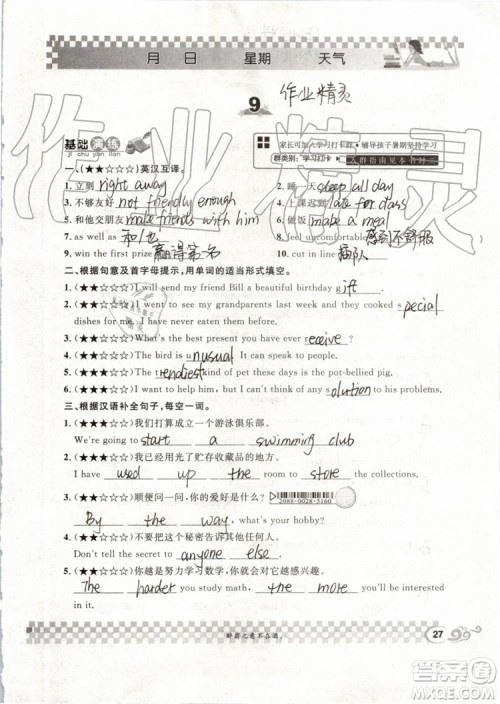 月 日 星期 天气
9 作业精灵
基础演练
ji chu yan lian
家长可加入学习打卡群,辅导孩子暑期坚持学习
群类别:学习打卡 入群指南见本书封二
一、(★★☆☆☆)英汉互译。
1. 立刻 right away 2. 睡一天 sleep all day
3. 不够友好 not friendly enough 4. 上课迟到 late for class
5. 和他交朋友 make friends with him 6. 做饭 make a meal
7. as well as 和/也 8. feel uncomfortable 感到不舒服
9. win the first prize 赢得第一名 10. cut in line 插队
二、根据句意及首字母提示,用单词的适当形式填空。
1. (★★☆☆☆)I will send my friend Bill a beautiful birthday gift.
2. (★★☆☆☆)I went to see my grandparents last week and they cooked special
dishes for me. I had a good time there.
3. (★★☆☆☆)What's the best present you have ever receive?
4. (★★☆☆☆)The bird is unusual. It can speak to people.
5. (★★☆☆☆)The trendiest kind of pet these days is the pot-bellied pig.
6. (★★☆☆☆)I want to help him, but I can't find any solution to his problems.
三、根据汉语补全句子,每空一词。
1. (★★☆☆☆)我们打算成立一个游泳俱乐部。
We're going to start a swimming club
2. (★★☆☆☆)我已经用光了贮存收藏品的空间。
I have used up the room to store the collections.
3. (★★☆☆☆)顺便问一问,你的爱好是什么?
2088-0028-5160
By the way, what's your hobby?
4. (★★☆☆☆)不要把这个秘密告诉其他任何人。
Don't tell the secret to anyone else.
5. (★★☆☆☆)你越是努力学习数学,你就会对它越感兴趣。
The harder you study math, the more you'll be interested
in it.
醉翁之意不在酒。
27
作业精灵
答案圈